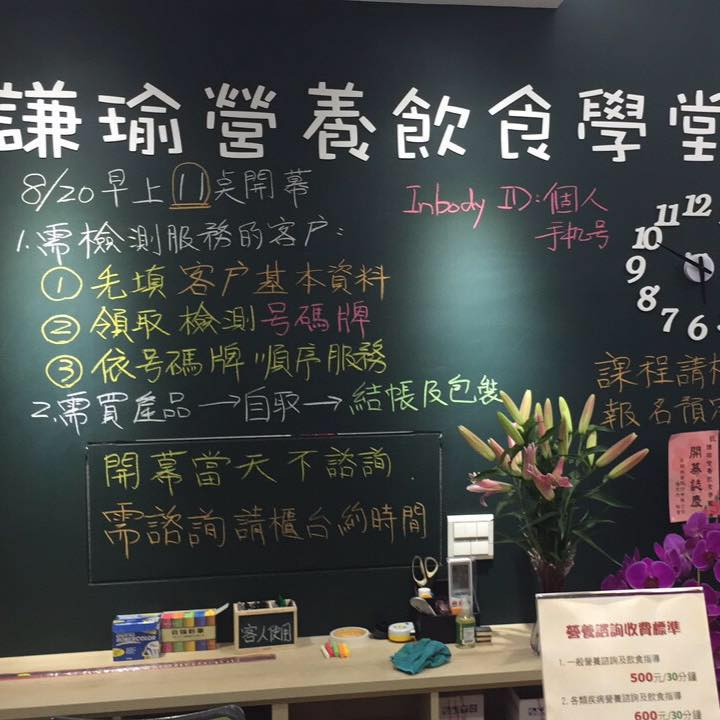 謙瑜營養飲食學堂
8/20早上11点開幕
Inbody ID:個人
手机号
1.需檢測服務的客户:
①先填客户基本資料
②領取檢測号碼牌
③依号碼牌順序服務
2.需買產品→自取→結帳及包裝
課程請
報名預
開幕當天不諮詢.
需諮詢請櫃台約時間
12
11
10
9
8
7
6
開幕誌慶
客人使用
營養諮詢收費標準
1.一般營養諮詢及飲食指導
500元/30分鐘
2.各類疾病營養諮詢及飲食指導
600元/30分鐘